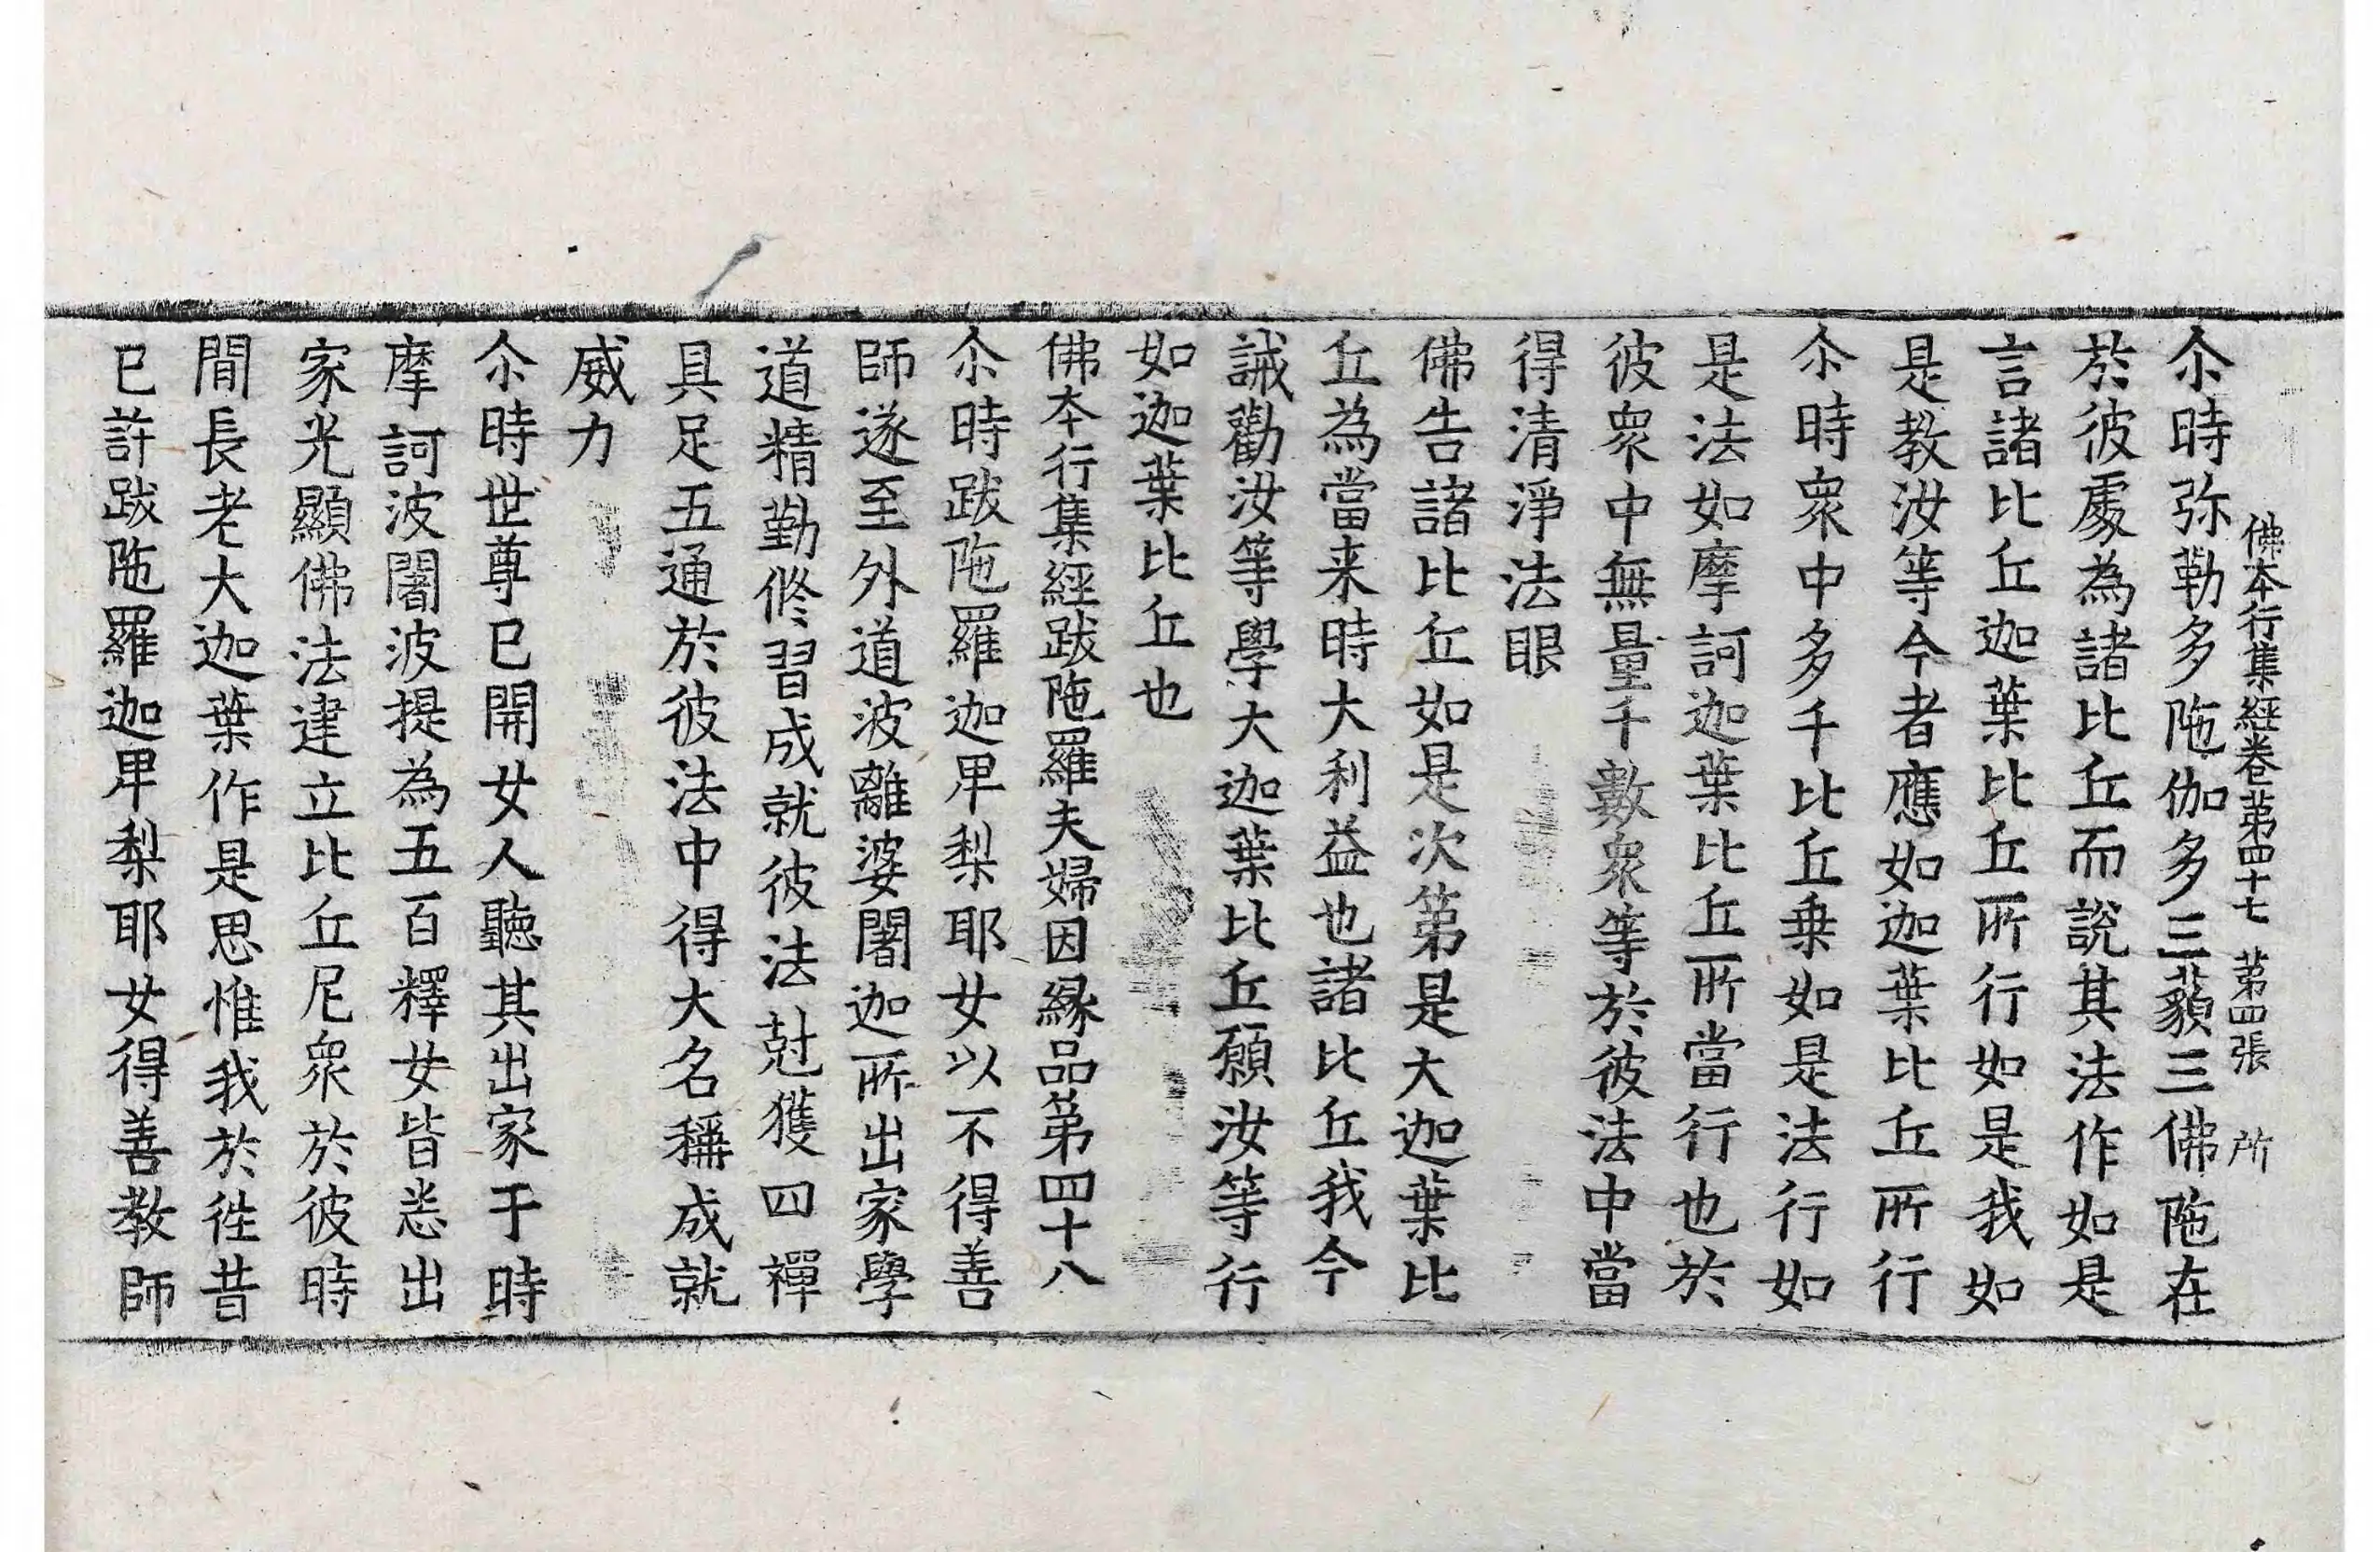 佛本行集經卷第四十七　第四張　所
尒時弥勒多陁伽多三藐三佛陁在
於彼處為諸比丘而說其法作如是
言諸比丘迦葉比丘所行如是我如
是教汝等今者應如迦葉比丘所行
尒時衆中多千比丘乗如是法行如
是法如摩訶迦葉比丘所當行也於
彼衆中無量千數衆等於彼法中當
得清淨法眼
佛告諸比丘如是次第是大迦葉比
丘為當来時大利益也諸比丘我今
誡勸汝等學大迦葉比丘願汝等行
如迦葉比丘也
佛本行集經跋陁羅夫婦因縁品第四十八
尒時跋陁羅迦卑梨耶女以不得善
師遂至外道波離婆闍迦所出家學
道精勤修習成就彼法尅獲四禪
具足五通於彼法中得大名稱成就
威力
尒時世尊已開女人聽其出家于時
摩訶波闍波提為五百釋女皆悉出
家光顯佛法建立比丘尼衆於彼時
間長老大迦葉作是思惟我於徃昔
已許跋陁羅迦卑梨耶女得善教師